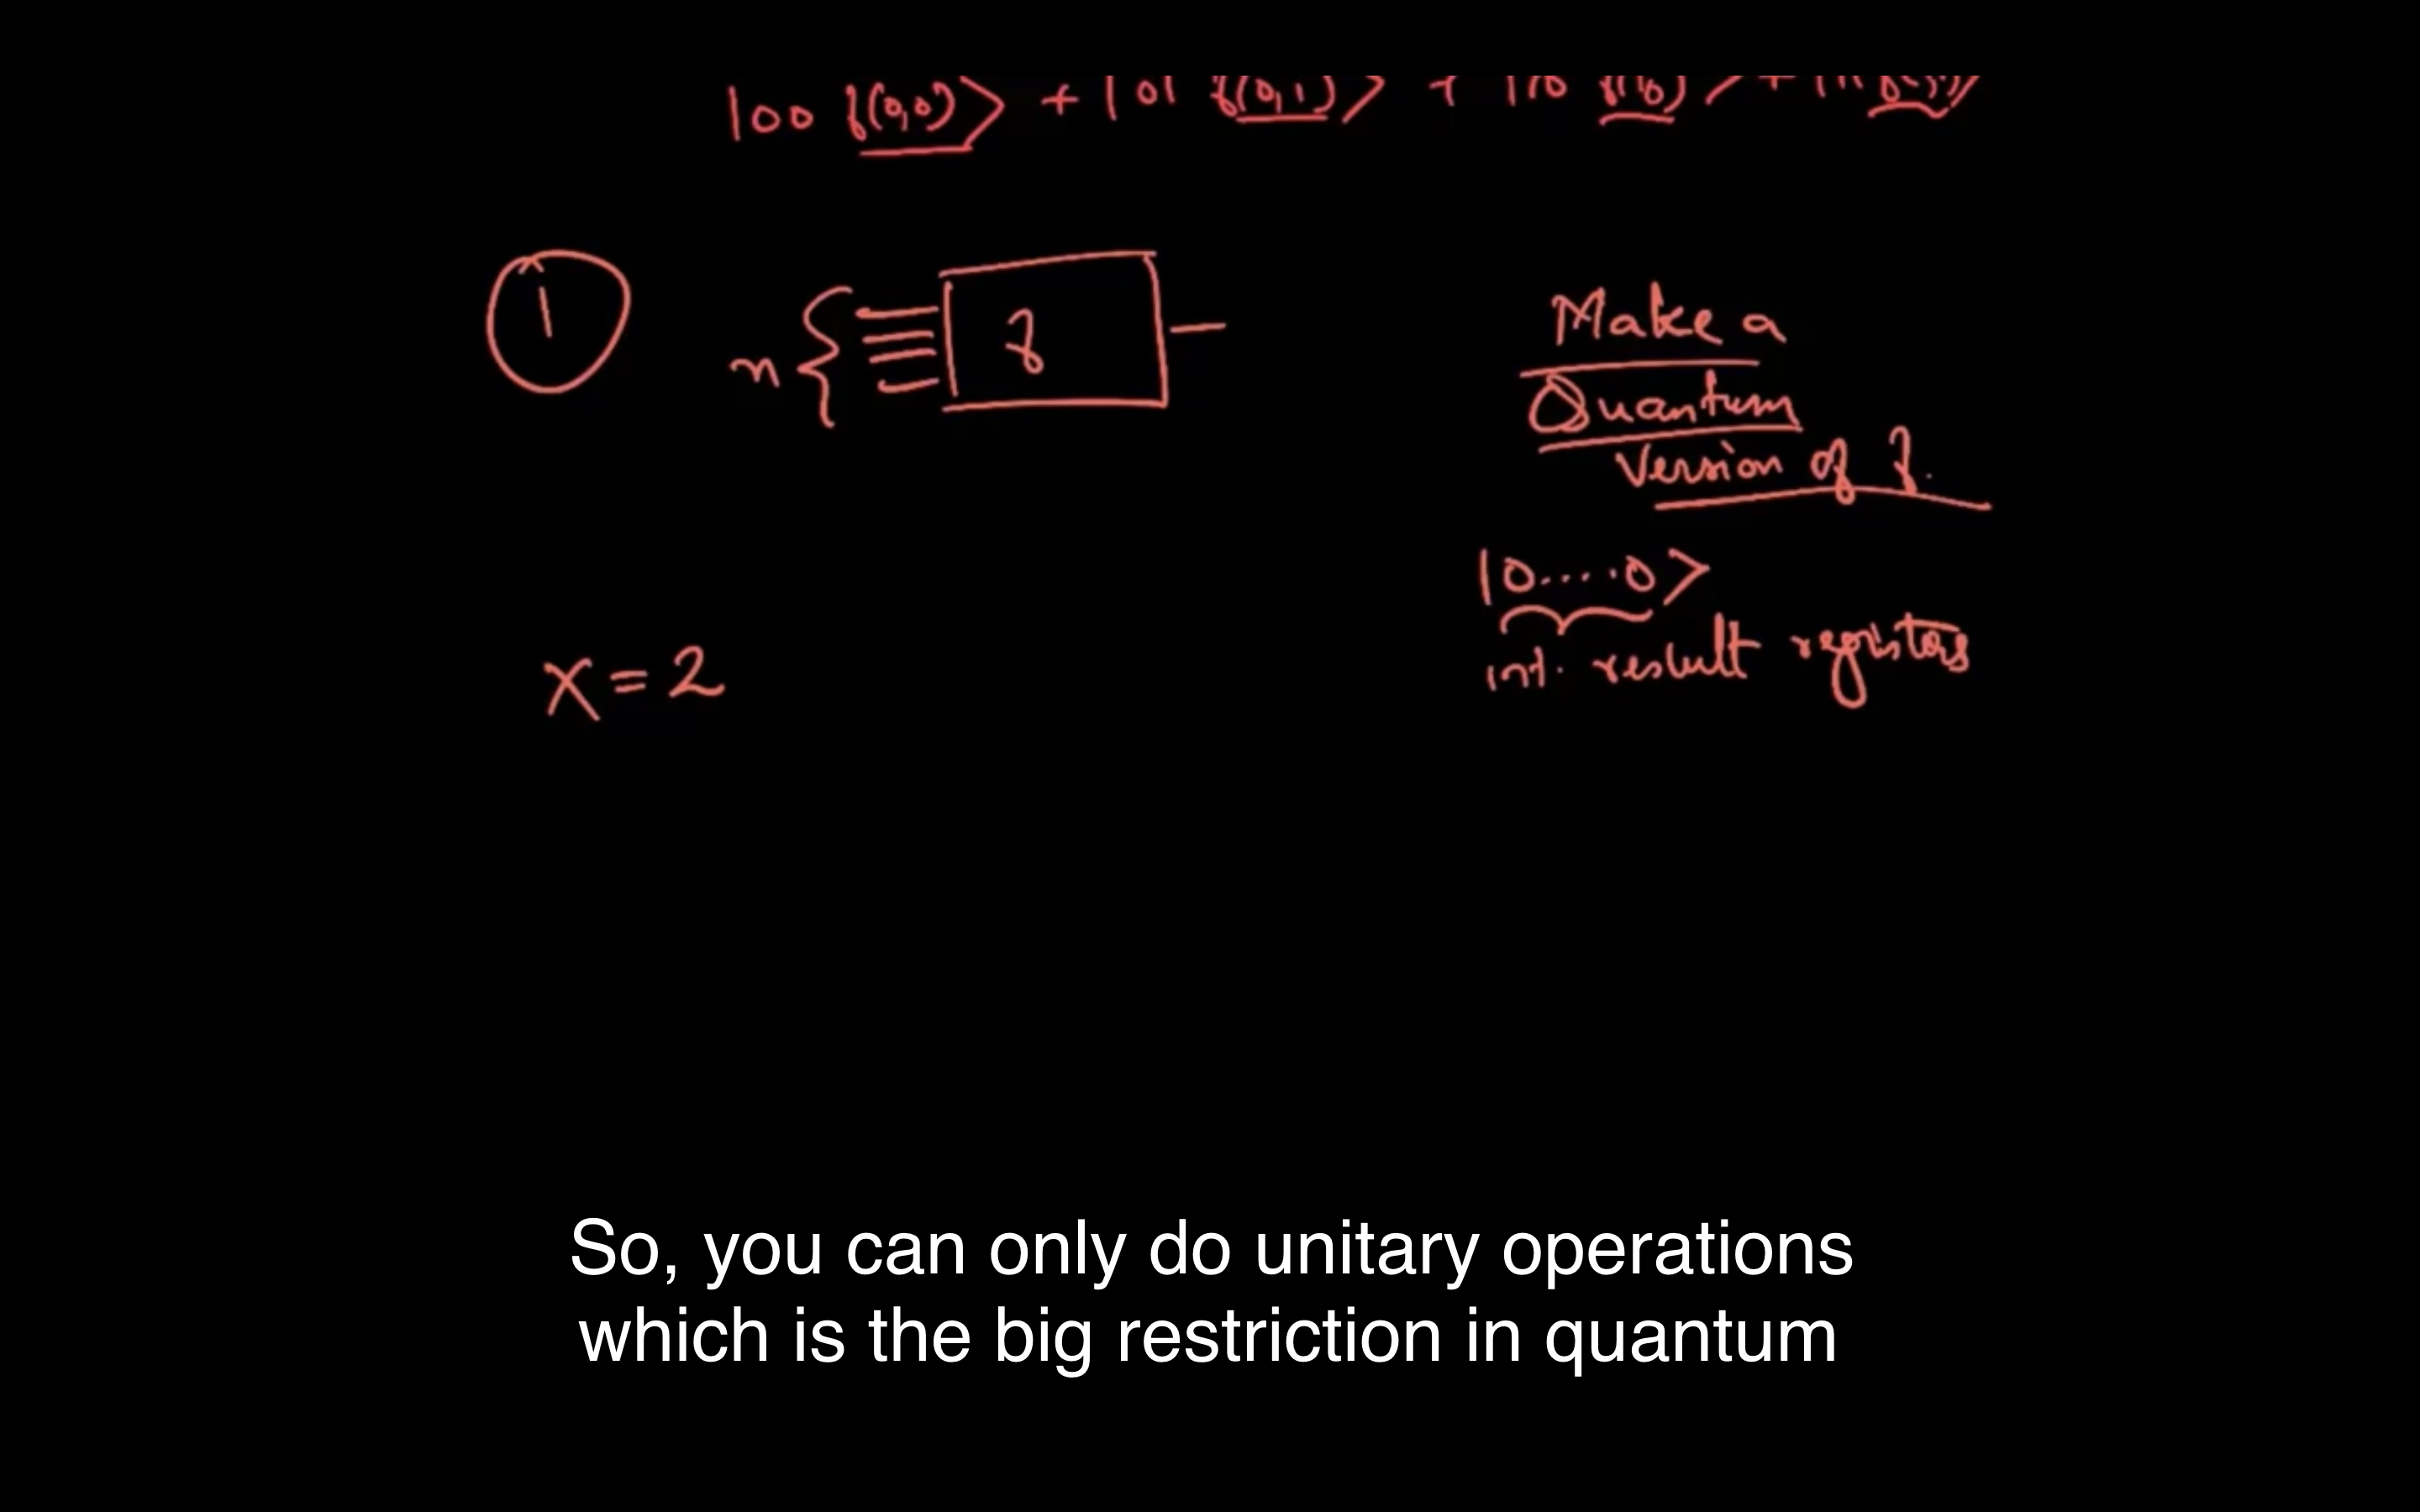 |00 f(0,0)⟩ + |01 f(0,1)⟩ + |10 f(1,0)⟩ + |11
1
n { f
Make a
Quantum
Version of f.
|0....0⟩
int. result registors
x = 2
So, you can only do unitary operations
which is the big restriction in quantum